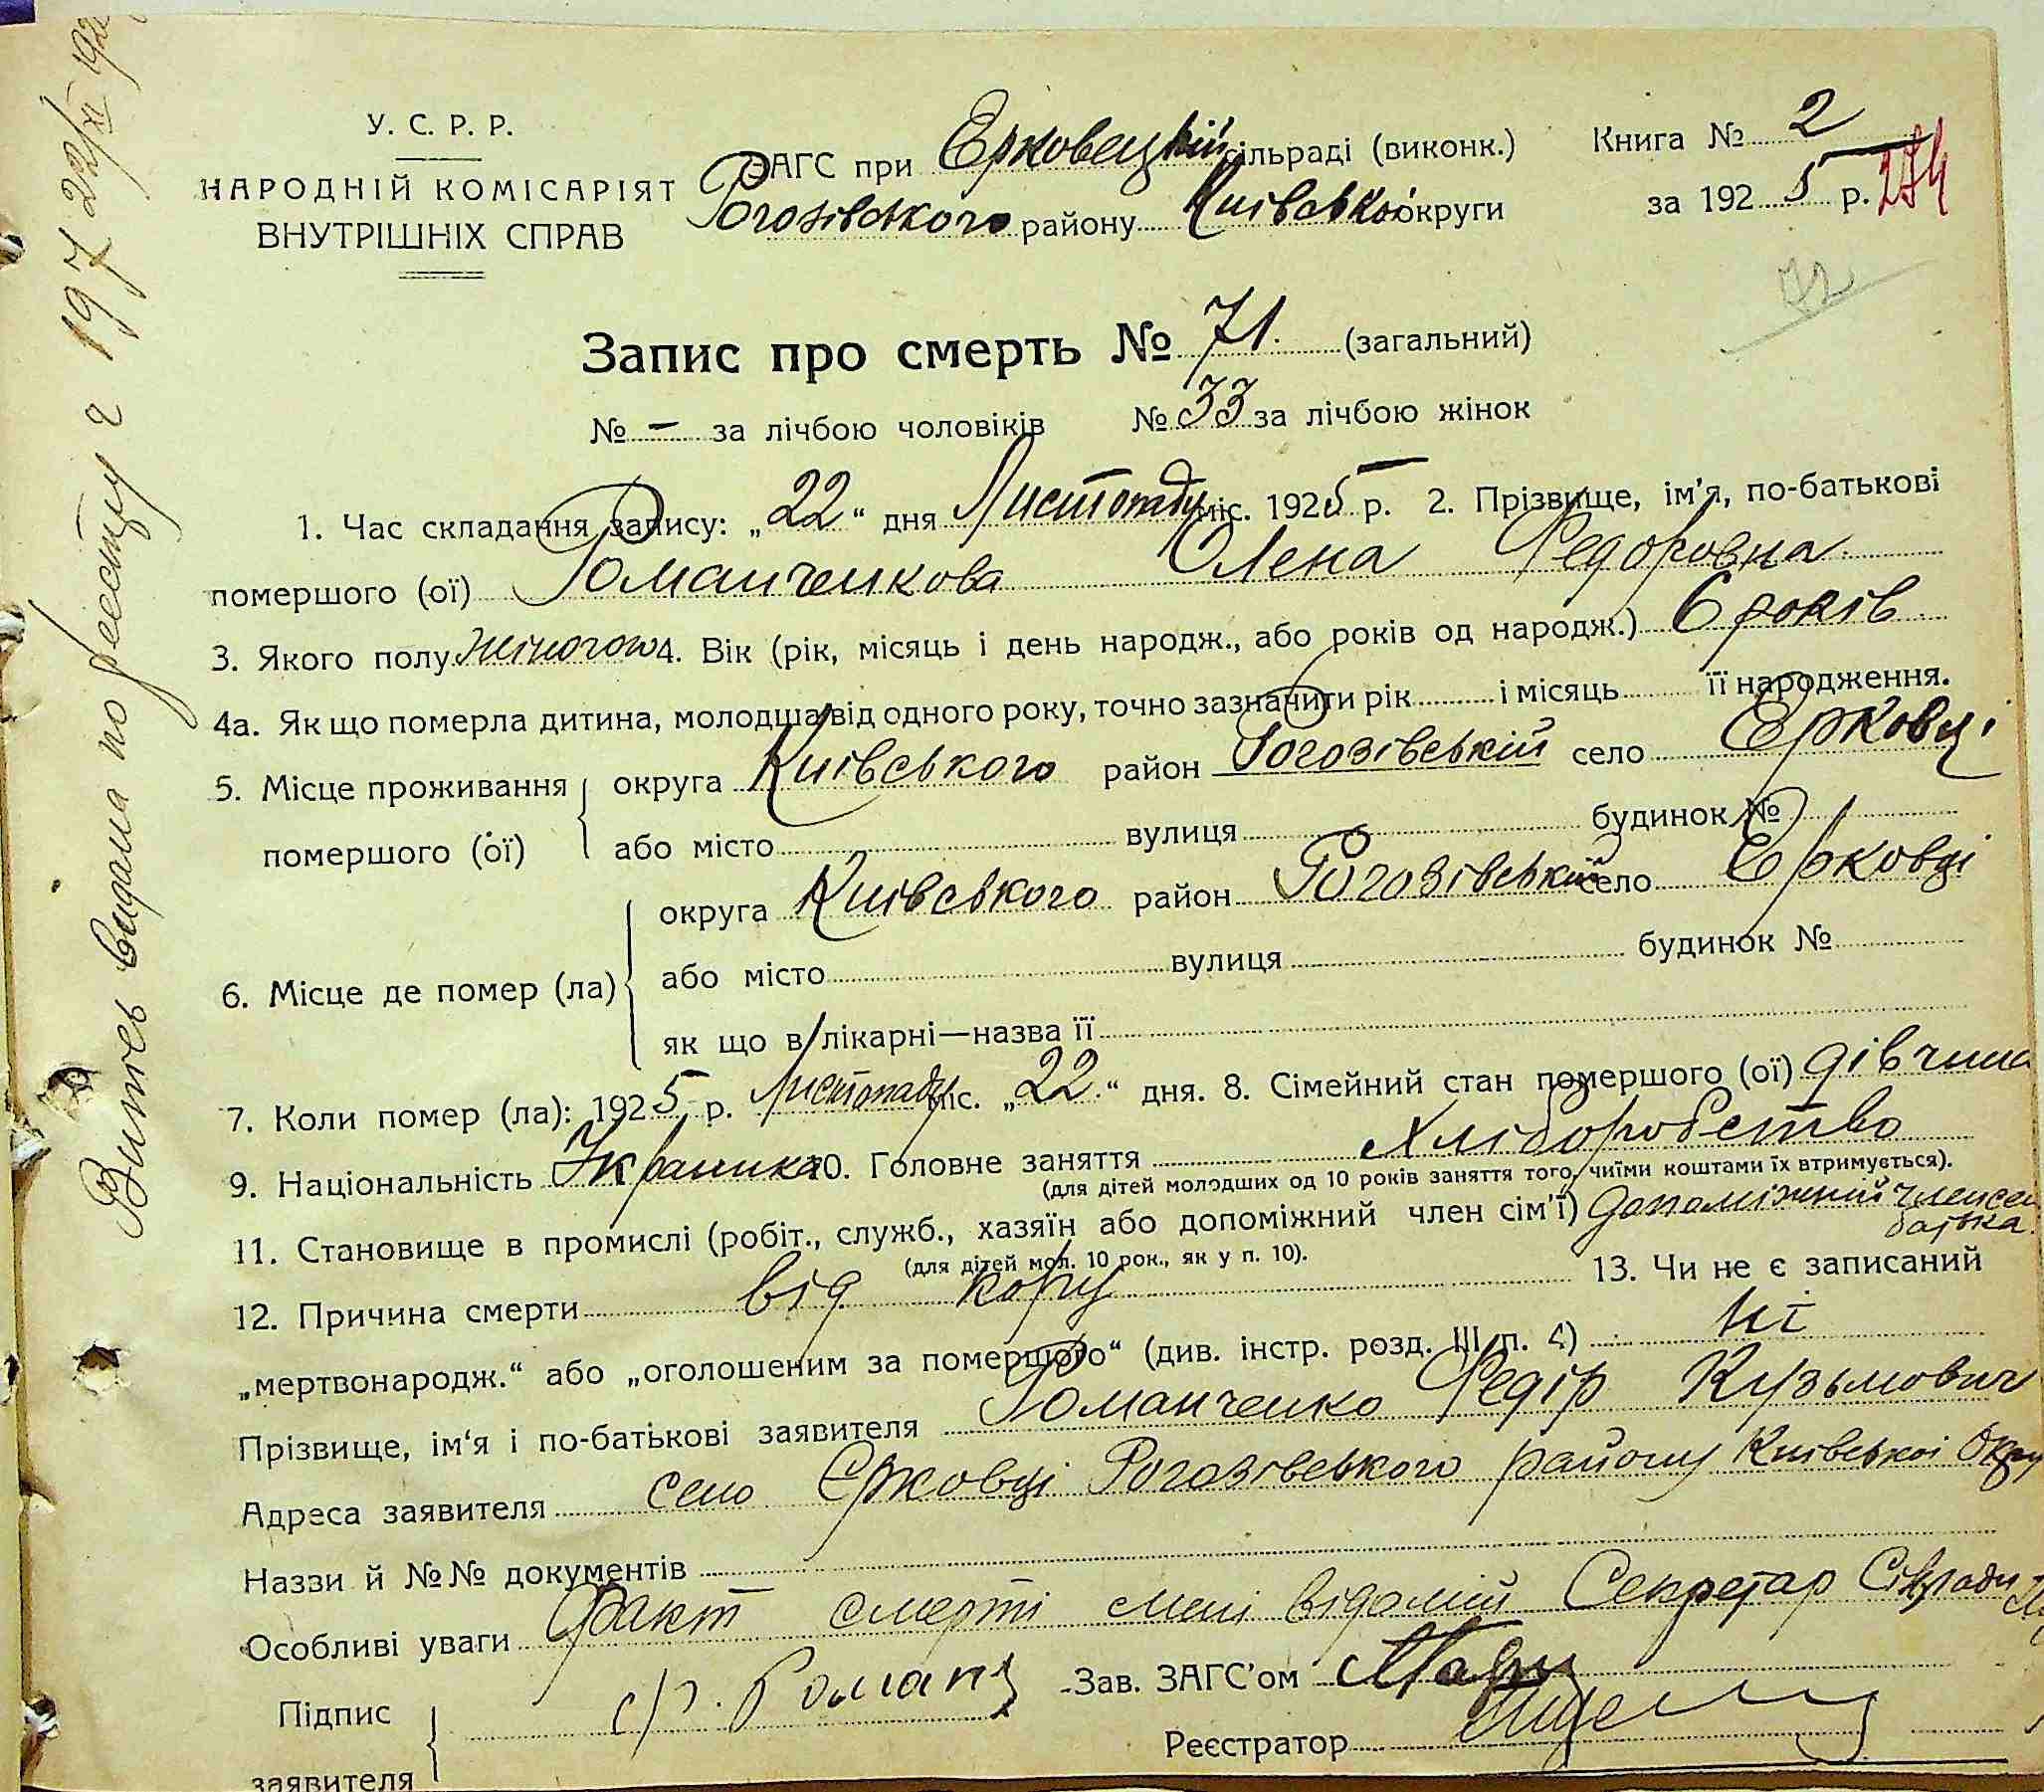 Витяг видана по реєстру ч 197 22/XI 192
У. С. Р. Р.
НАРОДНІЙ КОМІСАРІЯТ
ВНУТРІШНІХ СПРАВ
ЗАГС при Ерковецькій сільраді (виконк.)
Рогозівського району Київської округи
Книга № 2
за 1925 р. 274
72
Запис про смерть № 71. (загальний)
№ – за лічбою чоловіків № 33 за лічбою жінок
1. Час складання запису: „22“ дня Листопаду міс. 1925 р. 2. Прізвище, ім'я, по-батькові
помершого (ої) Романченкова Олена Федоровна
3. Якого полу жіночого 4. Вік (рік, місяць і день народж., або років од народж.) 6 років
4а. Як що померла дитина, молодша від одного року, точно зазначити рік і місяць її народження.
5. Місце проживання помершого (ої) округа Київського район Рогозівський село Ерковці
або місто вулиця будинок №
6. Місце де помер (ла) округа Київського район Рогозівський село Ерковці
або місто вулиця будинок №
як що в лікарні—назва її
7. Коли помер (ла): 1925 р. Листопаду міс. „22“ дня. 8. Сімейний стан помершого (ої) дівчина
9. Національність Українка 10. Головне заняття Хліборобство
(для дітей молодших од 10 років заняття того, чиїми коштами їх втримується).
11. Становище в промислі (робіт., служб., хазяїн або допоміжний член сім'ї) допоміжний член сем
батька
(для дітей мол. 10 рок., як у п. 10).
12. Причина смерти від кору 13. Чи не є записаний
„мертвонародж.“ або „оголошеним за помершого“ (див. інстр. розд. III п. 4) ні
Прізвище, ім'я і по-батькові заявителя Романченко Федір Кузьмович
Адреса заявителя село Єрковці Рогозівського району Київської Окру
Назви й №№ документів
Особливі уваги Факт смерті мені відомий Секретар Сільради
Підпис заявителя Ф. Роман Зав. ЗАГС'ом
Реєстратор